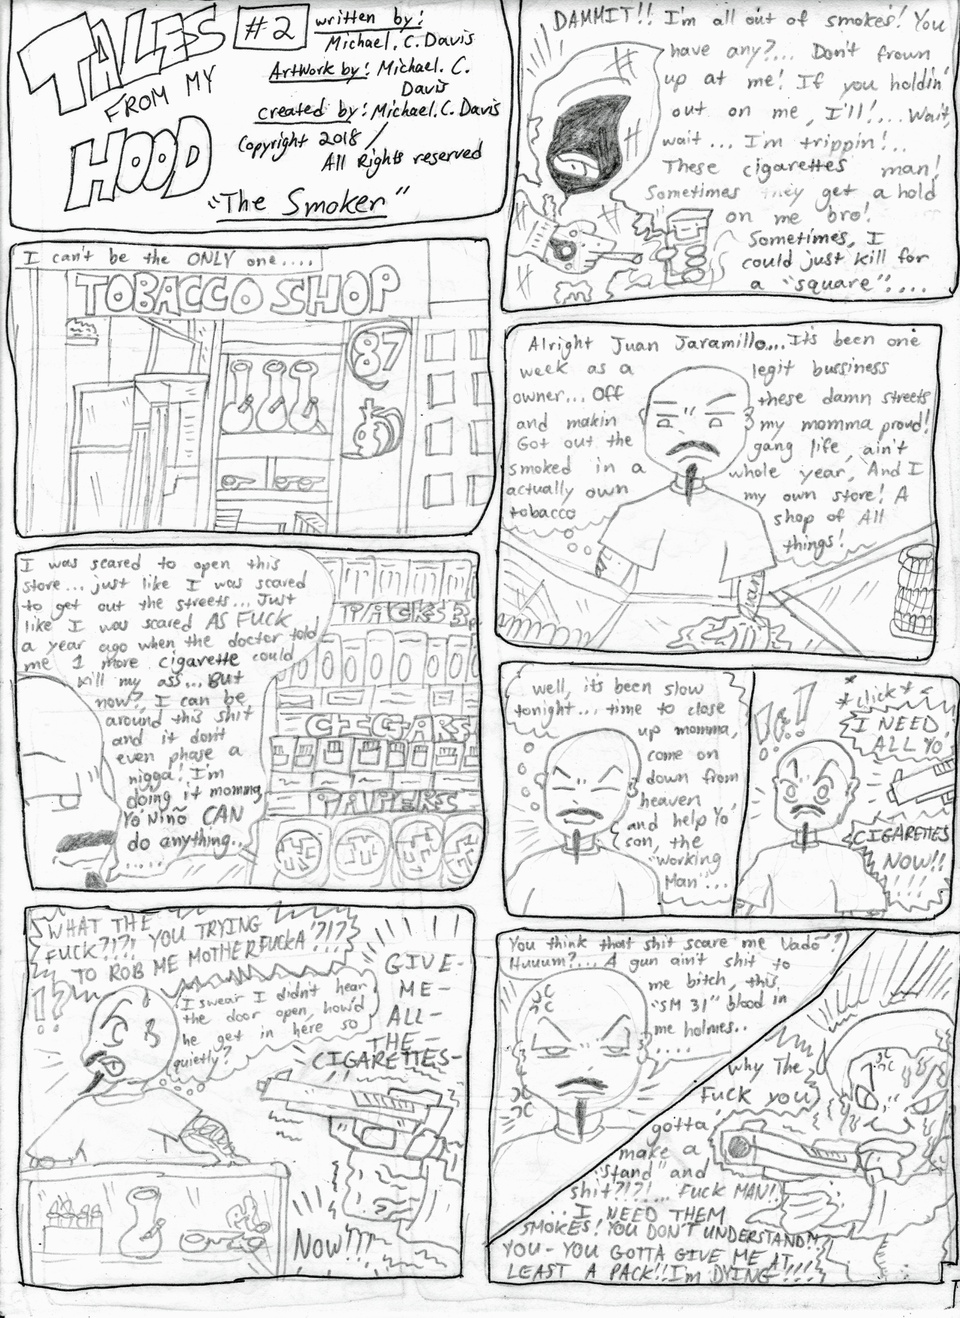 TALES
FROM MY
HOOD
#2
written by:
Michael. C. Davis
Artwork by: Michael. C.
Davis
created by: Michael. C. Davis
Copyright 2018
All Rights reserved
"The Smoker"
DAMMIT!! I'm all out of smokes! You
have any?.... Don't frown
up at me! If you holdin'
out on me, I'll!.... Wait,
wait... I'm trippin!..
These cigarettes man!
Sometimes they get a hold
on me bro!
Sometimes, I
could just kill for
a "square"....
I can't be the ONLY one....
TOBACCO SHOP
87
Alright Juan Jaramillo.... It's been one
week as a legit bussiness
owner... Off these damn streets
and makin my momma proud!
Got out the gang life, ain't
smoked in a whole year, And I
actually own my own store! A
tobacco shop of All
things!
I was scared to open this
store... just like I was scared
to get out the streets... Just
like I was scared AS FUCK
a year ago when the doctor told
me 1 more cigarette could
kill my ass... But
now? I can be
around this shit
and it don't
even phase a
nigga! I'm
doing it momma,
Yo' Niño CAN
do anything..
.....
PACKS
CIGARS
PAPERS
well, it's been slow
tonight... time to close
up momma,
come on
down from
heaven
and help Yo'
son, the
"working
Man"...
!!!
*click*
I NEED
ALL YO'
CIGARETTES
NOW!!
!!!!
WHAT THE
FUCK?!?! YOU TRYING
TO ROB ME MOTHERFUCKA'?!?
!?
I swear I didn't hear
the door open, how'd
he get in here so
quietly?
GIVE-
ME-
ALL-
THE-
CIGARETTES-
NOW!!!
You think that shit scare me Vado'?
Huuum?... A gun ain't shit to
me bitch, this
"SM 31" blood in
me holmes..
....
why The
Fuck you
gotta
make a
"stand" and
shit?!?!.... Fuck MAN!
.. I NEED THEM
SMOKES! YOU DON'T UNDERSTAND!!
YOU-YOU GOTTA GIVE ME AT
LEAST A PACK!! I'm DYING!!!!